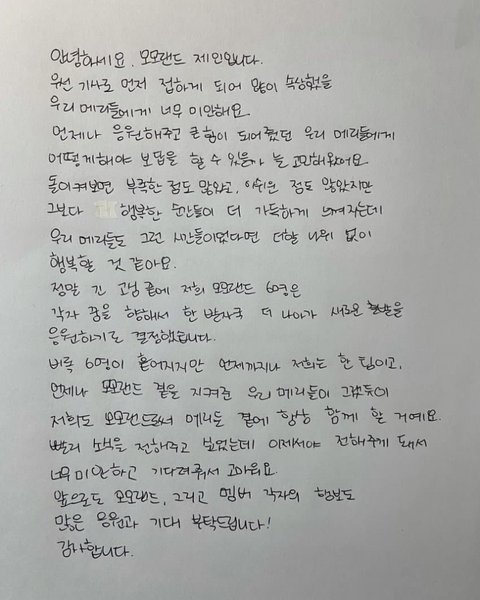 안녕하세요. 모모랜드 제인입니다.
우선 기사로 먼저 접하게 되어 많이 속상했을
우리 메리들에게 너무 미안해요.
언제나 응원해주고 큰 힘이 되어줬던 우리 메리들에게
어떻게 해야 보답을 할 수 있을까 늘 고민해왔어요.
돌이켜보면 부족한 점도 많았고, 아쉬운 점도 많았지만
그보다 행복한 순간들이 더 가득하게 느껴지는데
우리 메리들도 그런 시간들이었다면 더할 나위 없이
행복할 것 같아요.
정말 긴 고심 끝에 저희 모모랜드 6명은
각자 꿈을 향해서 한 발자국 더 나아가 새로운 출발을
응원하기로 결정했습니다.
비록 6명이 흩어지지만 언제까지나 저희는 한 팀이고,
언제나 모모랜드 곁을 지켜준 우리 메리들이 그랬듯이
저희도 모모랜드로서 메리들 곁에 항상 함께 할 거예요.
빨리 소식을 전해주고 싶었는데 이제서야 전해주게 돼서
너무 미안하고 기다려줘서 고마워요.
앞으로도 모모랜드, 그리고 멤버 각자의 행보도
많은 응원과 기대 부탁드립니다!
감사합니다.